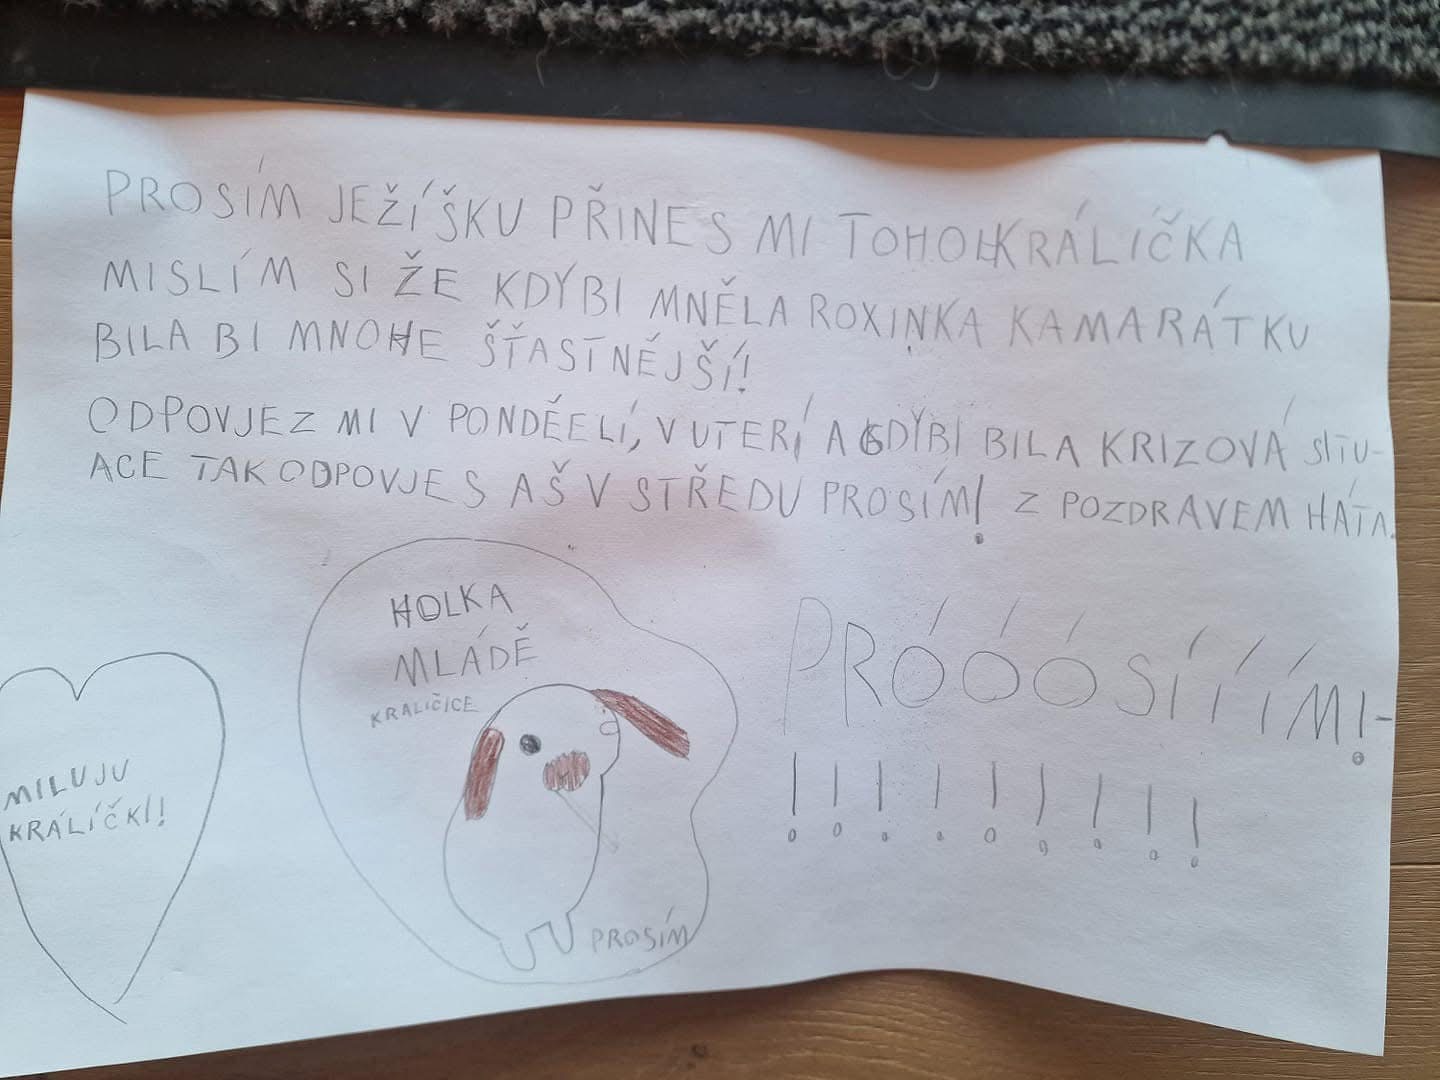 PROSÍM JEŽÍŠKU PŘINES MI TOHO KRÁLÍČKA
MISLÍM SI ŽE KDYBI MNĚLA ROXINKA KAMARÁTKU
BILA BI MNOHE ŠŤASTNĚJŠÍ!
ODPOVJEZ MI V PONDĚELÍ, V UTERÍ A GDYBI BILA KRIZOVÁ SITU-
ACE TAK ODPOVJES AŠ V STŘEDU PROSÍM! Z POZDRAVEM HÁTA.
HOLKA
MLÁDĚ
KRALIČICE
PROSÍM
PRÓÓÓSÍÍÍM!-
!!!!!!!!!
MILUJU
KRÁLÍČKI!